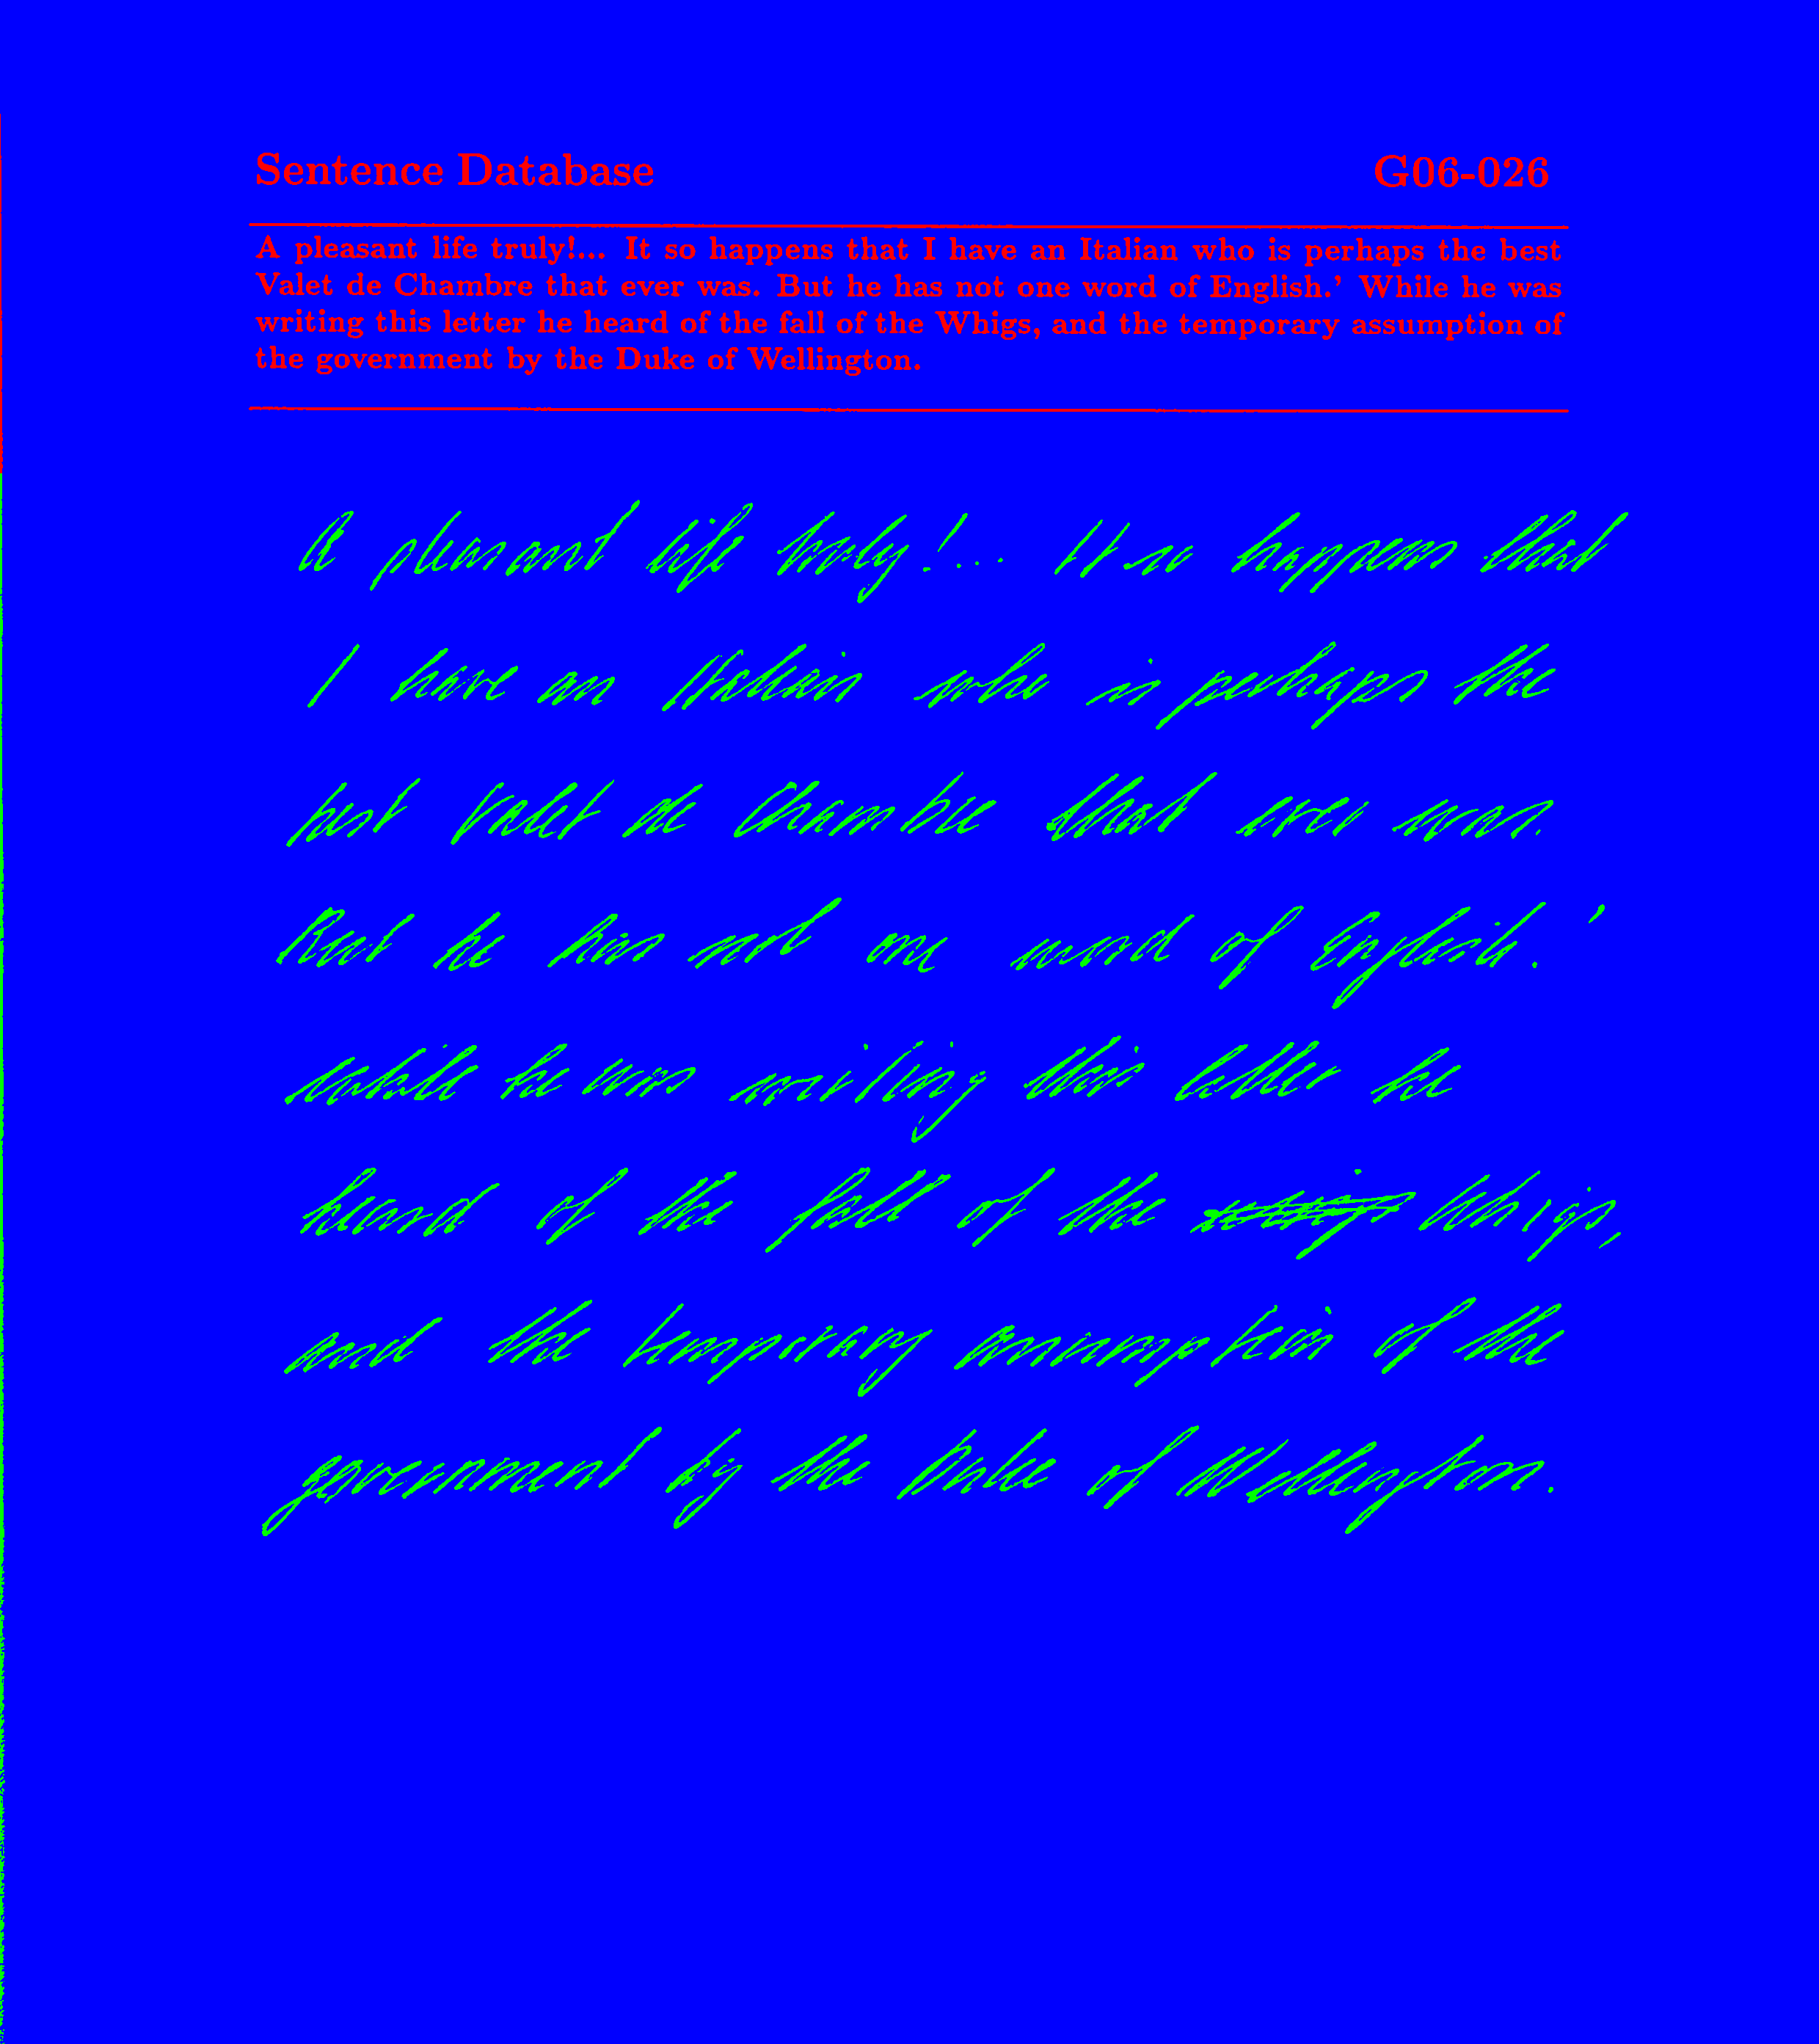 Sentence Database G06-026
A pleasant life truly!... It so happens that I have an Italian who is perhaps the best
Valet de Chambre that ever was. But he has not one word of English.' While he was
writing this letter he heard of the fall of the Whigs, and the temporary assumption of
the government by the Duke of Wellington.
A pleasant life truly!... It so happens that
I have an Italian who is perhaps the
best Valet de Chambre that ever was.
But he has not one word of English.'
while he was writing this letter he
heard of the fall of the Whigs,
and the temporary assumption of the
government by the Duke of Wellington.